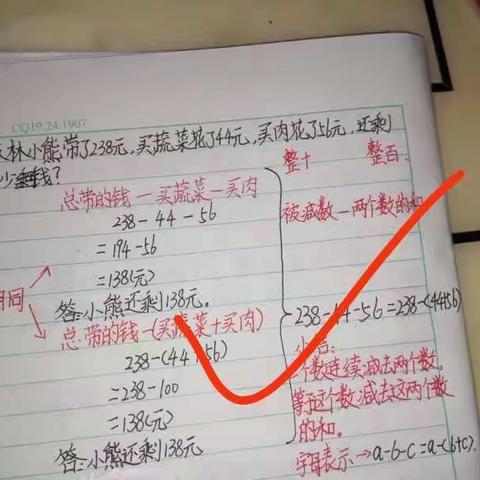 CQ19.24.1907
林小熊带了238元,买蔬菜花了44元,买肉花了56元,还剩
少钱?
总带的钱-买蔬菜-买肉
238-44-56
=194-56
=138(元)
答:小熊还剩138元。
总带的钱-(买蔬菜+买肉)
238-(44+56)
=238-100
=138(元)
答:小熊还剩138元
相同
整十 整百
被减数-两个数的和
238-44-56=238-(44+56)
小结:
一个数连续减去两个数,
等于这个数减去这两个数
的和。
字母表示→a-b-c=a-(b+c).